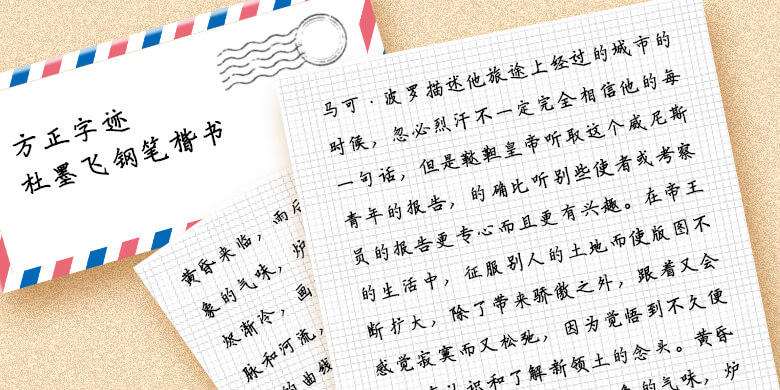 方正字迹
杜墨飞钢笔楷书
马可·波罗描述他旅途上经过的城市的
时候，忽必烈汗不一定完全相信他的每
一句话，但是鞑靼皇帝听取这个威尼斯
青年的报告，的确比听别些使者或考察
员的报告更专心而且更有兴趣。在帝王
的生活中，征服别人的土地而使版图不
断扩大，除了带来骄傲之外，跟着又会
感觉寂寞而又松弛，因为觉悟到不久便
识和了解新领土的念头。黄昏
的气味，炉
黄昏来临，雨后
象的气味，炉
烬渐冷，画
脉和河流，
的曲线